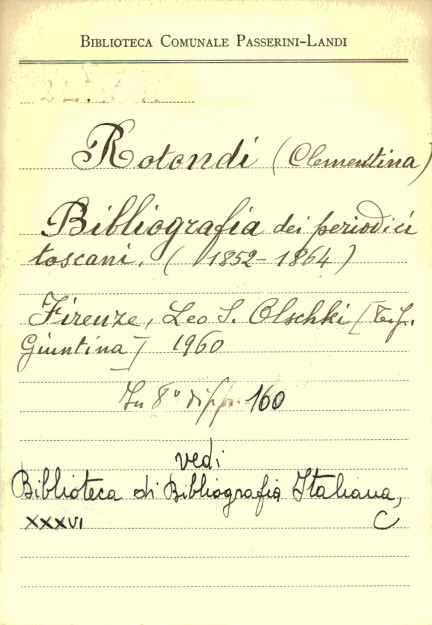 BIBLIOTECA COMUNALE PASSERINI-LANDI
Rotondi (Clementina)
Bibliografia dei periodici
toscani. (1852-1864)
Firenze, Leo S. Olschki [Tip.
Giuntina] 1960
In 8° di pp. 160
vedi
Biblioteca di Bibliografia Italiana,
XXXVI C